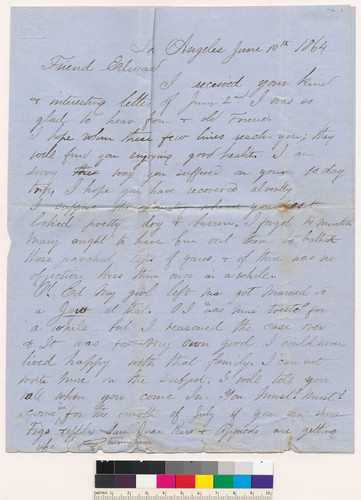 Los Angeles June 10th 1864
Friend Edward
I received your kind
& interesting letter of June 2nd I was so
glad to hear from a old Friend.
I hope when these few lines reach you; they
will find you enjoying good health. I am
sorry the way you suffered on your 10 day
trip, I hope you have recovered already
I suppose the where you
looked pretty dry & barren. I forgot to mention
Mary ought to have been out there to bathe
those parched lips of yours. & if there was no
objection kiss them once in a while.
Oh Ed My girl left me got married to
a Jew at that. O I was "mad" for
a while. but I reasoned the case over
& It was for my own good. I could never
lived happy with that family. I can not
write more on the subject. I will tell you
all when you come In. You must, must
"come", for the fourth of July if you can. Some
Figs & apples Pears & Apricots are getting
ripe